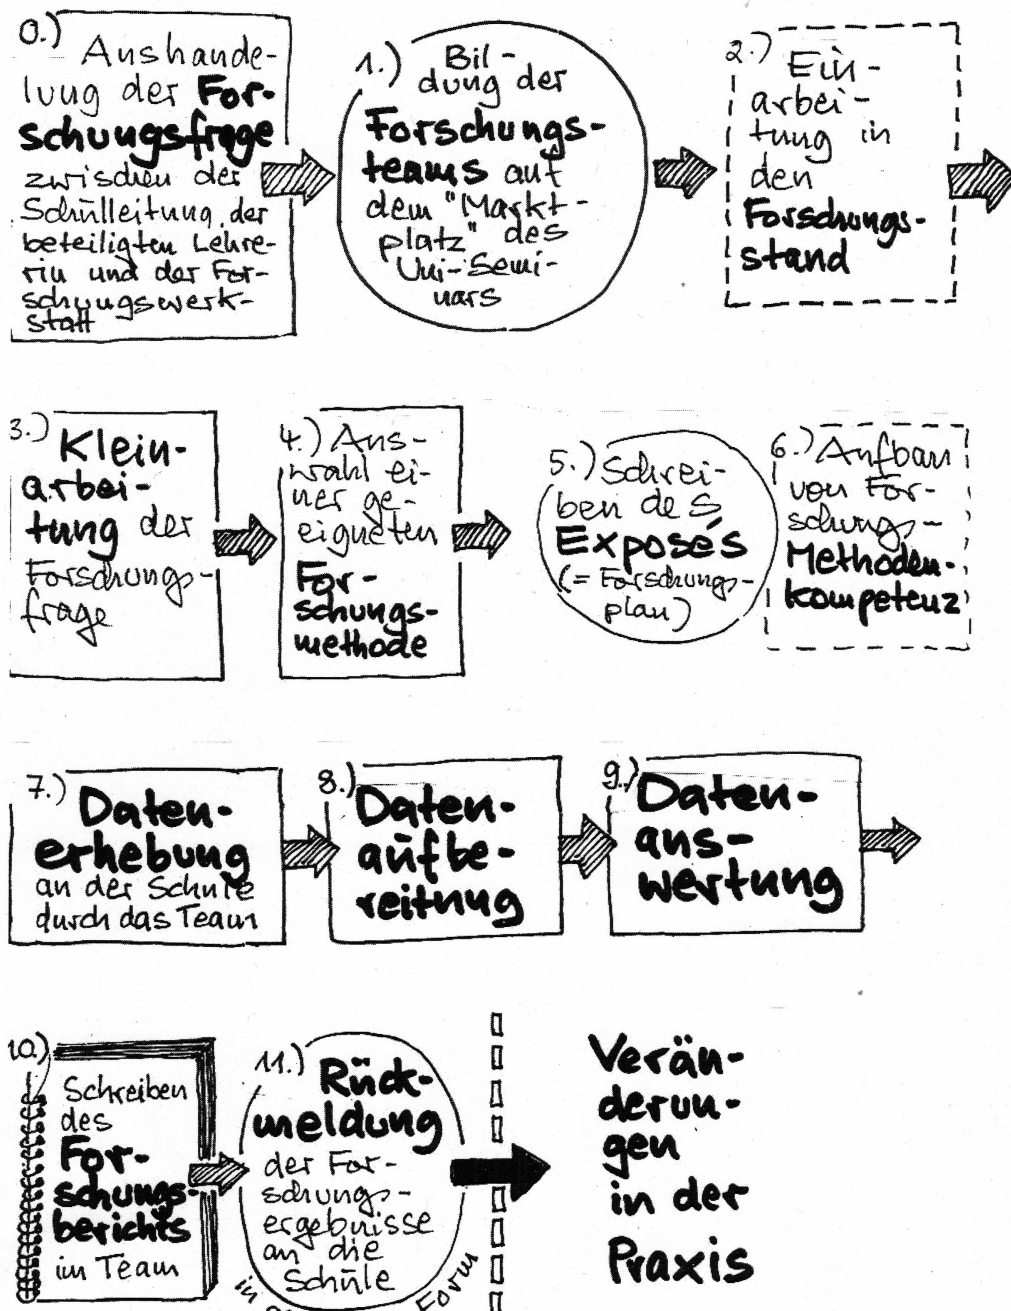 0.) Aushande-
lung der For-
schungsfrage
zwischen der
Schulleitung, der
beteiligten Lehre-
rin und der For-
schungswerk-
statt
1.) Bil-
dung der
Forschungs-
teams auf
dem "Markt-
platz" des
Uni-Semi-
nars
2.) Ein-
arbei-
tung in
den
Forschungs-
stand
3.) Klein-
arbei-
tung der
Forschungs-
frage
4.) Aus-
wahl ei-
ner ge-
eigneten
For-
schungs-
methode
5.) Schrei-
ben des
Exposés
(= Forschungs-
plan)
6.) Aufbau
von For-
schungs-
Methoden-
kompetenz
7.) Daten-
erhebung
an der Schule
durch das Team
8.) Daten-
aufbe-
reitung
9.) Daten-
aus-
wertung
10.)
Schreiben
des
For-
schungs-
berichts
im Team
11.) Rück-
meldung
der For-
schungs-
ergebnisse
an die
Schule
in Form
Verän-
derun-
gen
in der
Praxis